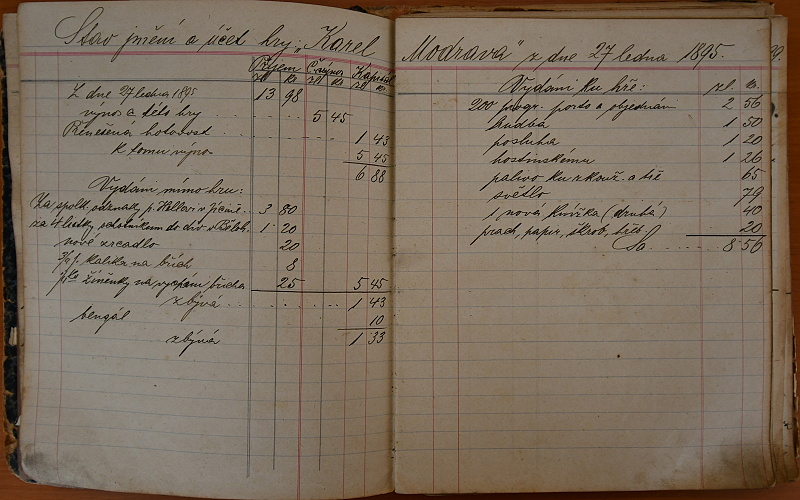 Stav jmění a účet hry „Karel
Příjem Č. výnos Kapitál
zl kr zl kr zl kr
Z dne 27 ledna 1895 13 98
výnos č. této hry 5 45
Přenešená hotovost 1 43
K tomu výnos 5 45
6 88
Vydání mimo hru:
Za spolk. odznaky p. Hellovi v Jičíně 3 80
za 4 lístky do div. v Běloh. 1 20
nové zrcadlo 20
na břich 8
žíněnky na vycpání břicha 25 5 45
zbývá 1 43
bengal 10
zbývá 1 33
Modrava" z dne 27 ledna 1895. 29.
Vydání ku hře: zl. kr.
200 progr. porto a objednání 2 56
hudba 1 50
posluha 1 20
hostinskému 1 26
palivo ku zkouš. a též 65
světlo 79
1 nová knížka (drubá) 40
prach, papír, škrob, 20
Sa 8 56